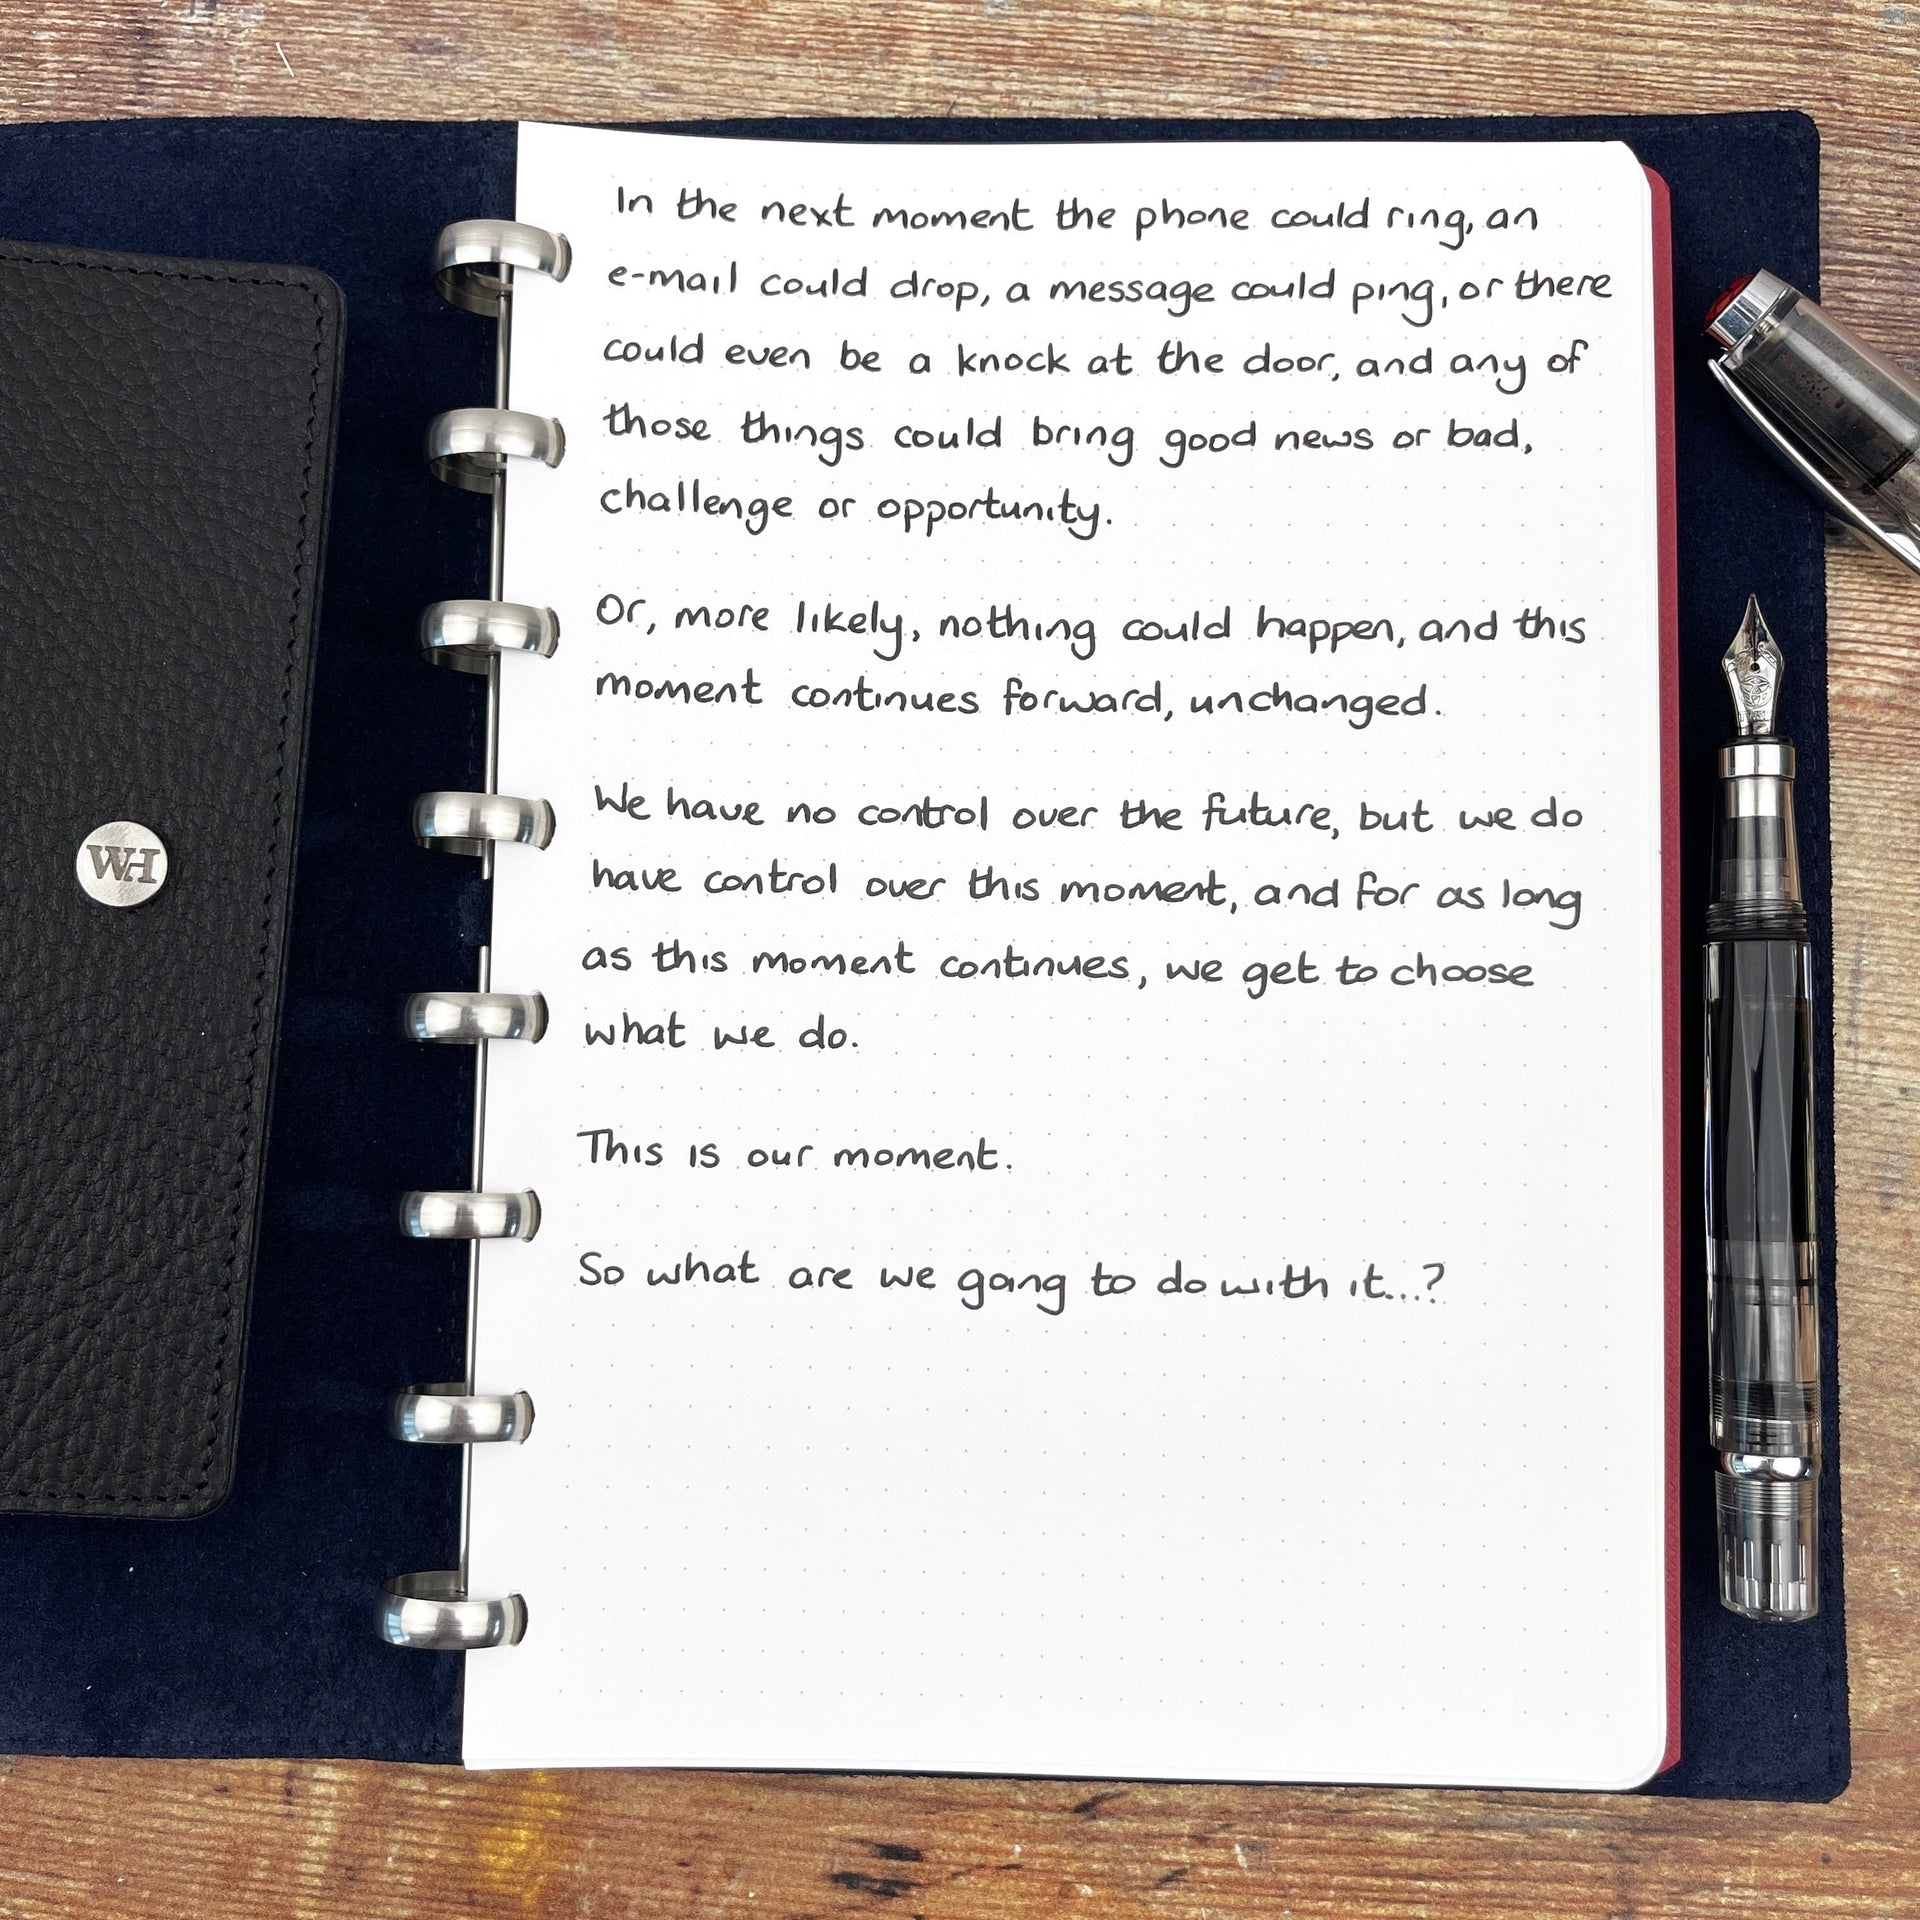 WH
In the next moment the phone could ring, an
e-mail could drop, a message could ping, or there
could even be a knock at the door, and any of
those things could bring good news or bad,
challenge or opportunity.
Or, more likely, nothing could happen, and this
moment continues forward, unchanged.
We have no control over the future, but we do
have control over this moment, and for as long
as this moment continues, we get to choose
what we do.
This is our moment.
So what are we going to do with it...?